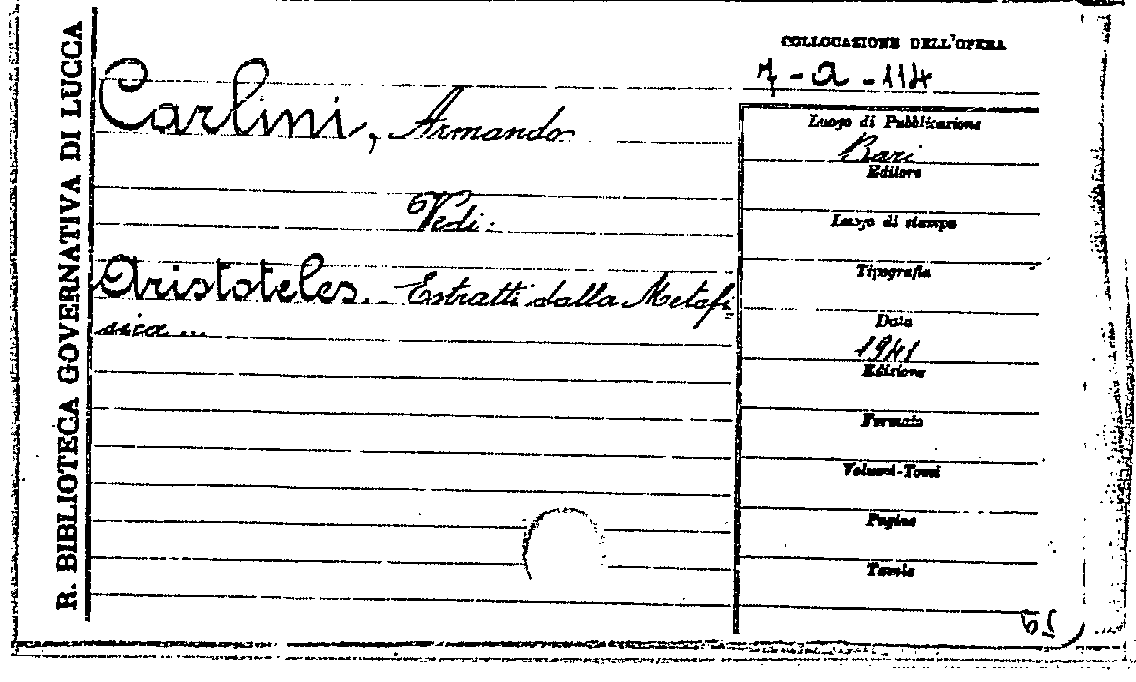 R. BIBLIOTECA GOVERNATIVA DI LUCCA
Carlini, Armando
Vedi:
Aristoteles. Estratti dalla Metafi-
sica ...
COLLOCAZIONE DELL'OPERA
7-a-114
Luogo di Pubblicazione
Bari
Editore
Luogo di stampa
Tipografia
Data
1941
Edizione
Formato
Volumi-Tomi
Pagine
Tavole